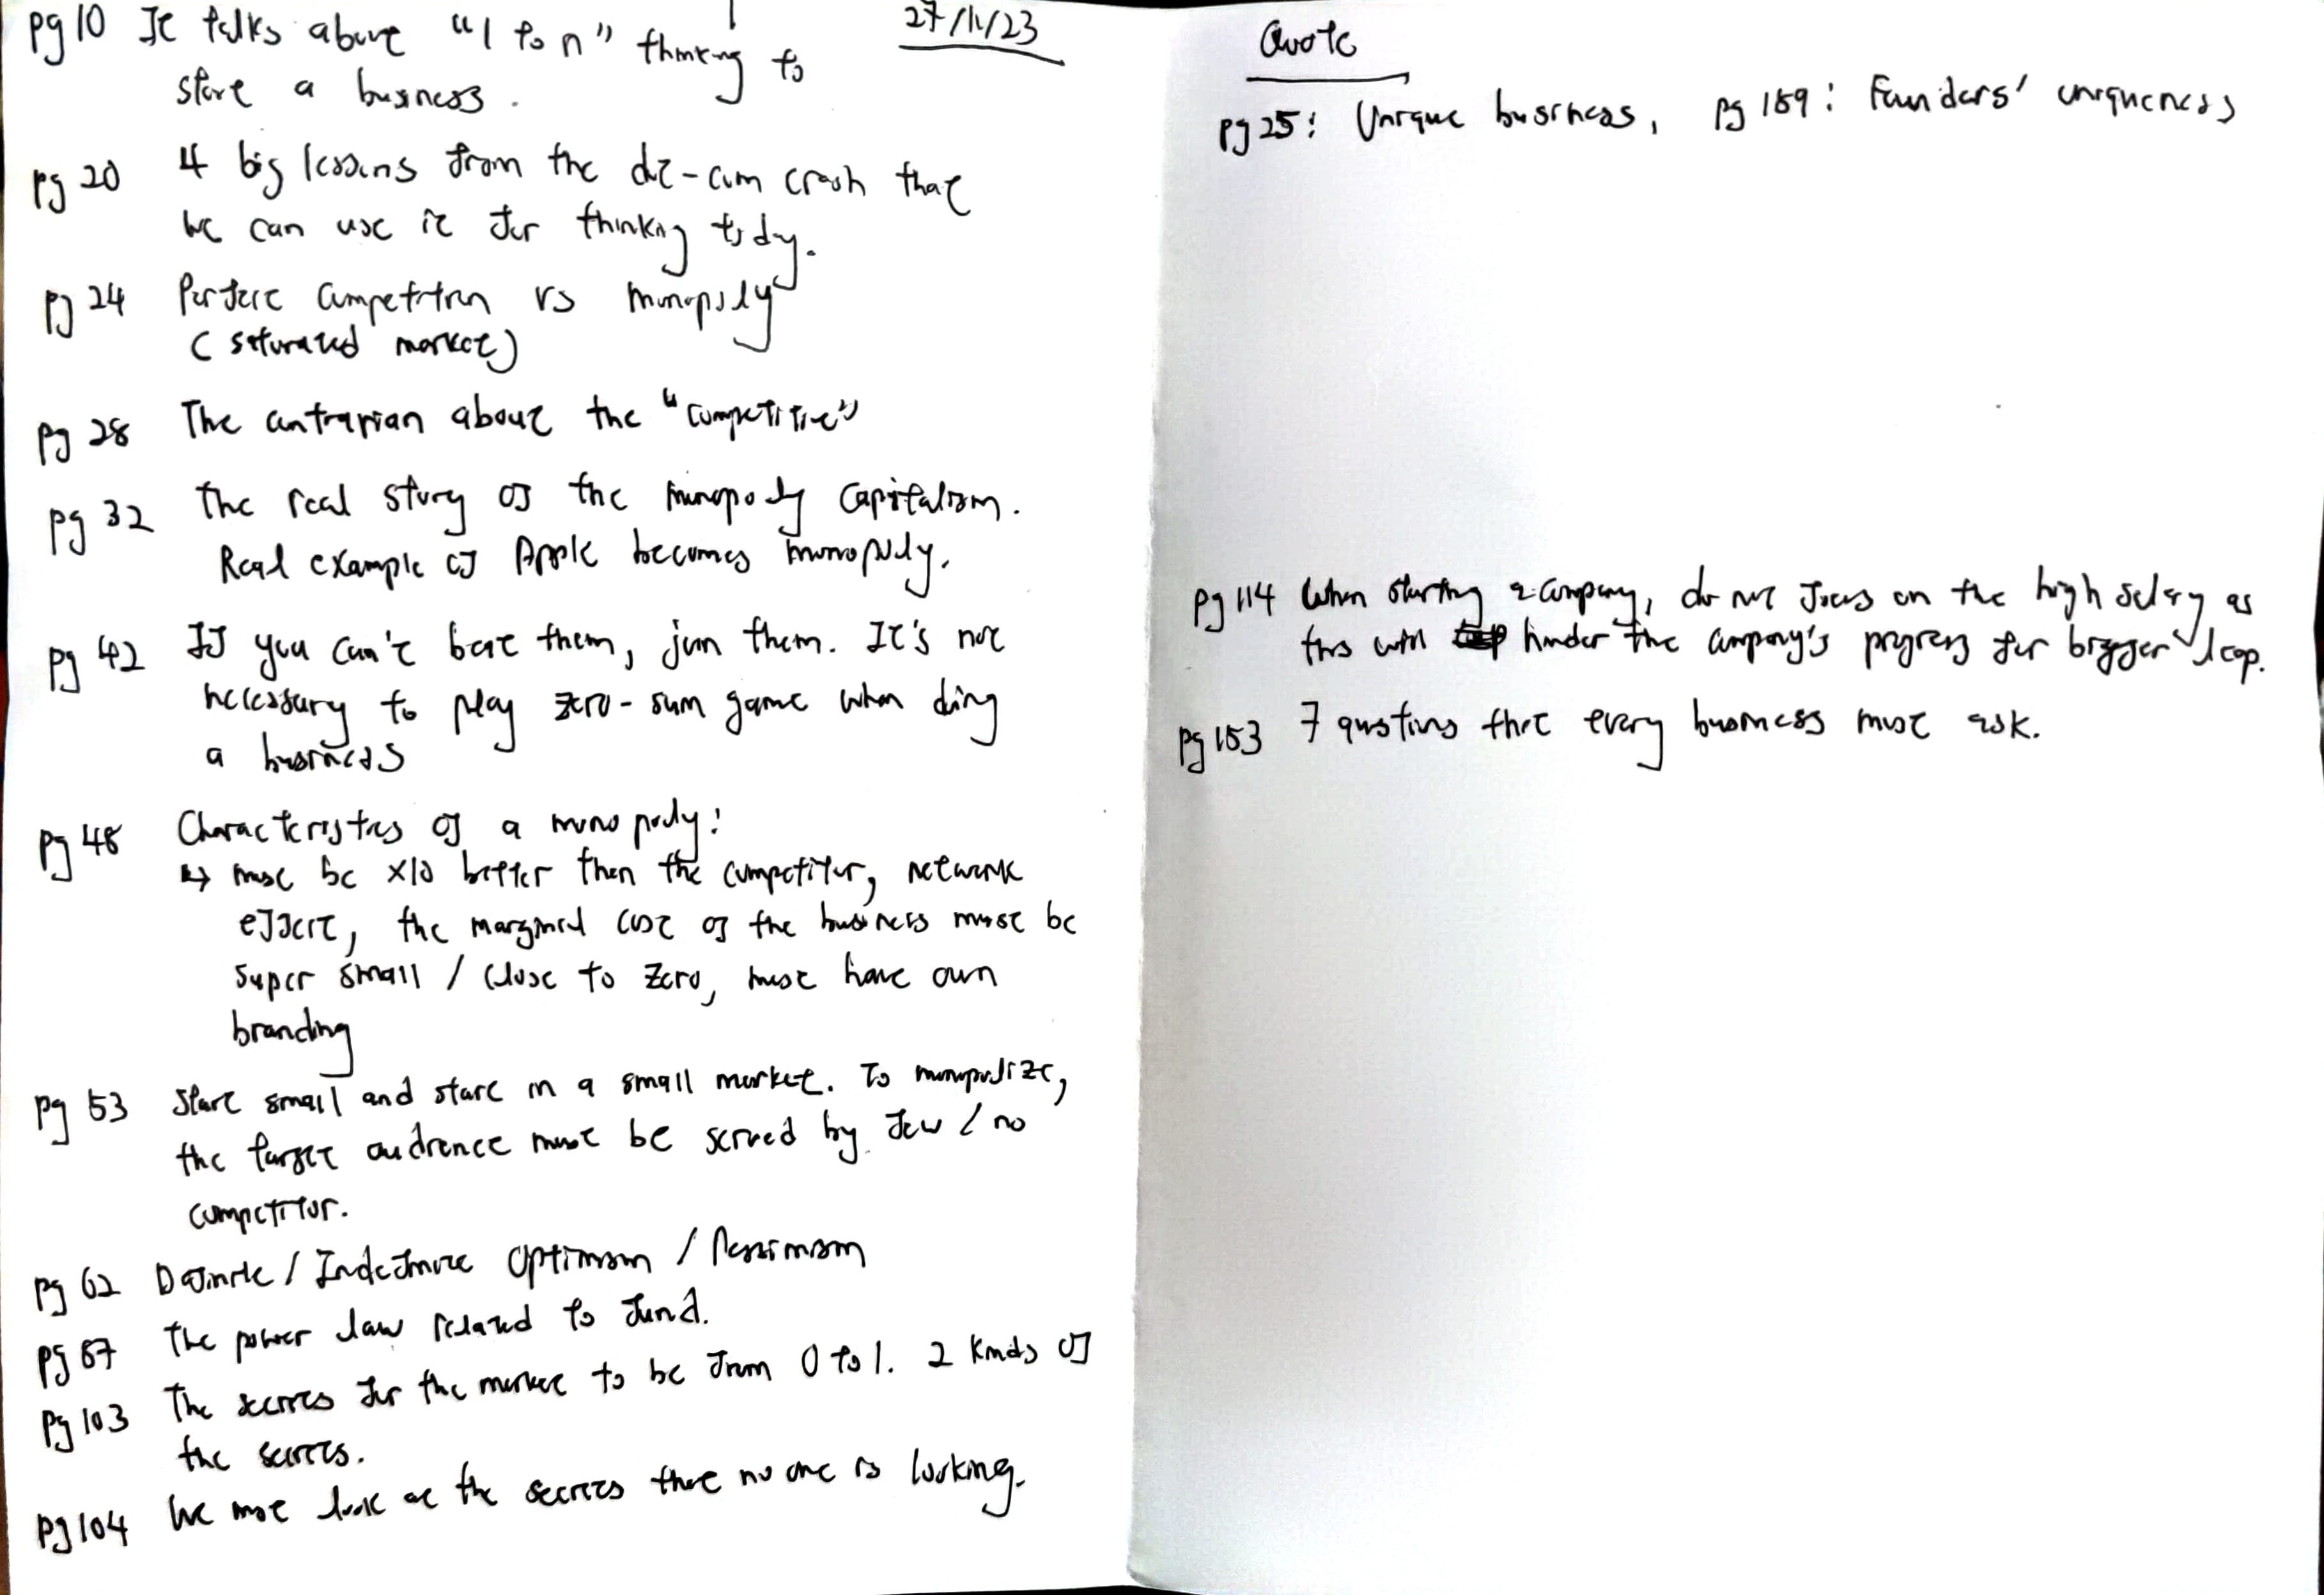 27/11/23
pg 10 It talks about "1 to n" thinking to
start a business.
pg 20 4 big lessons from the dot-com crash that
we can use it for thinking today.
pg 24 Perfect competition vs monopoly
(saturated market)
pg 28 The contrarian about the "competitive"
pg 32 The real story of the monopoly capitalism.
Real example of Apple becomes monopoly.
pg 42 If you can't beat them, join them. It's not
necessary to play zero-sum game when doing
a business
pg 48 Characteristics of a monopoly:
↳ must be x10 better than the competitor, network
effect, the marginal cost of the business must be
super small / close to zero, must have own
branding
pg 53 Start small and start in a small market. To monopolize,
the target audience must be served by few / no
competitor.
pg 62 Definite / Indefinite Optimism / Pessimism
pg 87 The power law related to fund.
pg 103 The secrets for the market to be from 0 to 1. 2 kinds of
the secrets.
pg 104 We must look at the secrets that no one is looking.
Quote
pg 25: Unique business, pg 189: Founders' uniqueness
pg 114 When starting a company, do not focus on the high salary as
this will hinder the company's progress for bigger leap.
pg 153 7 questions that every business must ask.